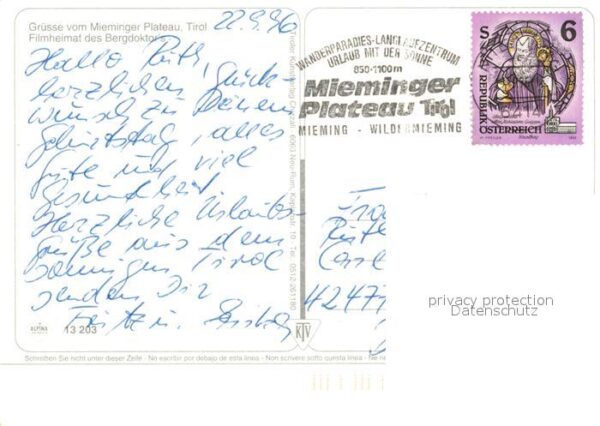 Grüsse vom Mieminger Plateau, Tirol
Filmheimat des Bergdoktors
22.9.96
Hallo Ruth,
herzlichen Glück-
wunsch zu Deinem
Geburtstag, alles
Gute und viel
Gesundheit.
Herzliche Urlaubs-
grüße aus dem
sonnigen Tirol
senden Dir
Fritz u.
ALPINA
13 203
Schreiben Sie nicht unter dieser Zeile - No escribir por debajo de esta linea - Non scrivere sotto questa linea - Ne
Tiroler Kunstverlag
KTV
WANDERPARADIES-LANGLAUFZENTRUM
URLAUB MIT DER SONNE
850-1100m
Mieminger
Plateau Tirol
MIEMING - WILDERMIEMING
S 6
REPUBLIK
ÖSTERREICH
6414
Frau
4247
privacy protection
Datenschutz